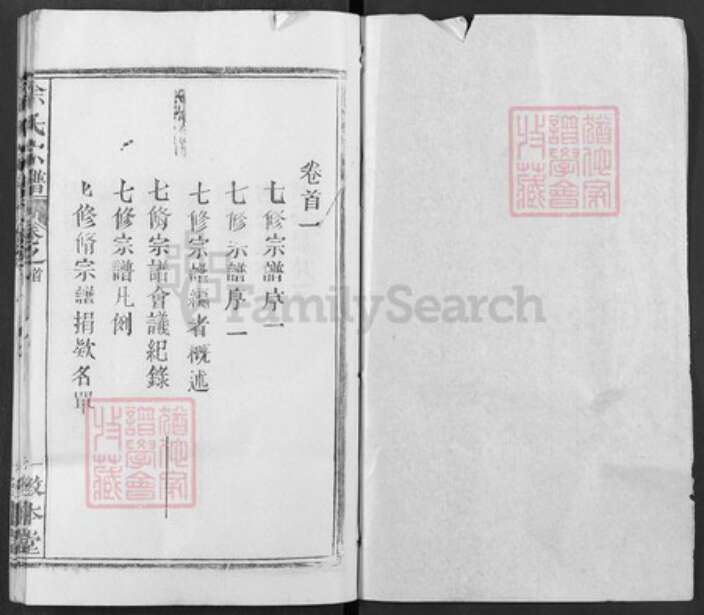 卷首一
七修宗譜序一
七修宗譜序二
七修宗譜編者概述
七脩宗譜會議紀錄
七修宗譜凡例
七修脩宗譜捐欵名單
余氏宗譜
卷之首
敘本堂
譜學會
收藏
FamilySearch